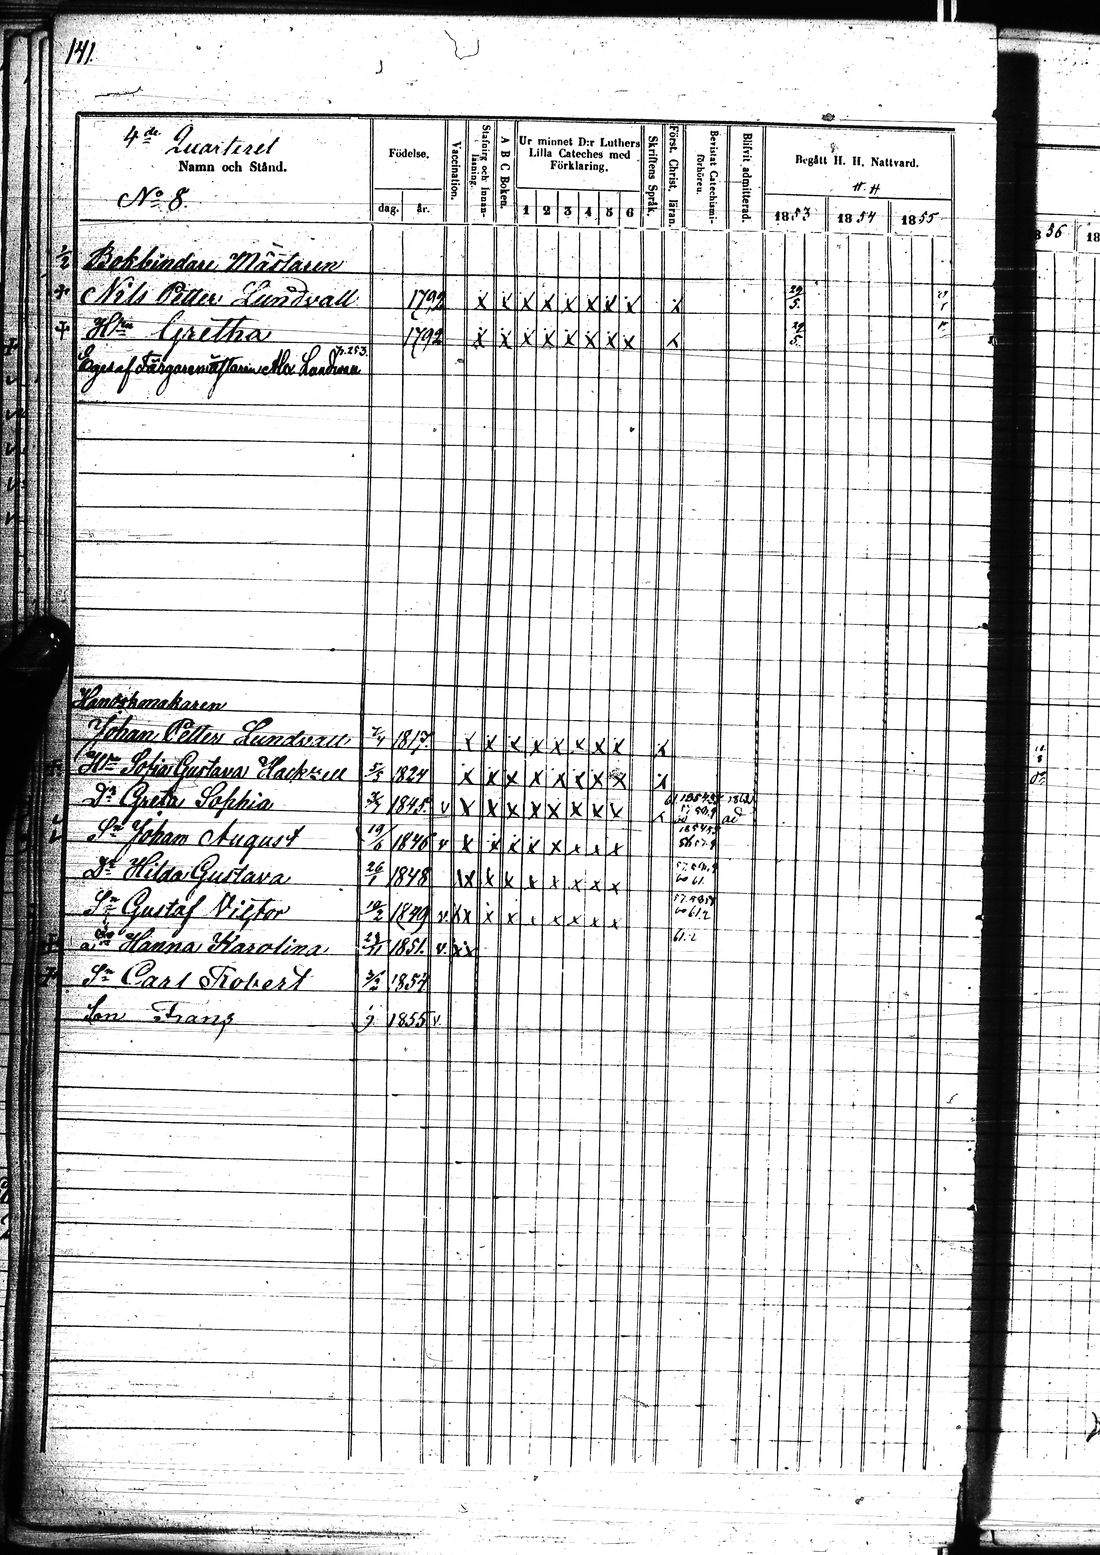 141.
4de Quarteret
Namn och Stånd.
No 8.
Födelse.
dag. år.
Vaccination.
Stafning och Innanläsning.
A B C Boken.
Ur minnet D:r Luthers Lilla Cateches med Förklaring.
1 2 3 4 5 6
Skriftens Språk.
Först. Christ. läran.
Bevistat Catechismiförhören.
Blifvit admitterad.
Begått H. H. Nattvard.
1853 1854 1855
Bokbindare Mästaren
Nils Petter Lundvall 1792 x x x x x x x x x 29/5
Hru Gretha 1792 x x x x x x x x x 29/5
Eges af Färgaremästarin
Handskmakaren
Johan Petter Lundvall 1817 x x x x x x x x x
Hru Sofia Gustava Hackzell 5/5 1824 x x x x x x x x x
Dr Greta Sophia 1845. v x x x x x x x x x
Sn Johan August 19/6 1846 v x x x x x x x x
Dr Hilda Gustava 26/1 1848 x x x x x x x x
Sn Gustaf Victor 1849 v x x x x x x x x
Hanna Karolina 1851. v. x x 61.2
Sn Carl Robert 1854
Son Frans 1855 v.